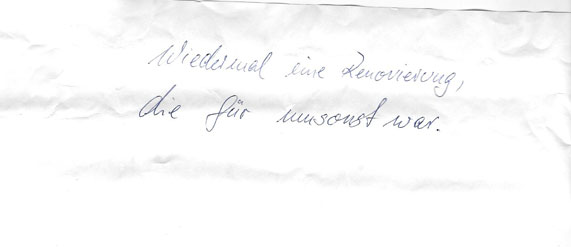 Wiedermal eine Renovierung,
die für umsonst war.